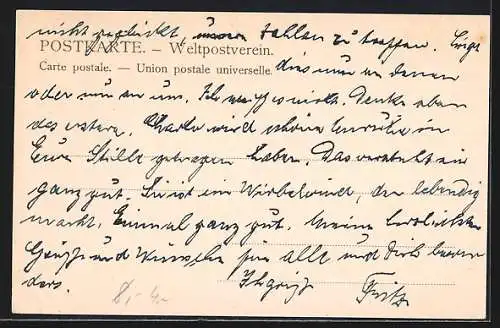 nicht geglückt, unsere Zahlen zu treffen. Liegt
POSTKARTE. — Weltpostverein.
Carte postale. — Union postale universelle.
dies nun an denen
oder nun an uns. Ich weiß es nicht. Denke eben
das erstere. wird schöne Unruhe in
Eure Stille getragen haben. Das versteht sie
ganz gut. Sie ist ein Wirbelwind, der lebendig
macht. Einmal ganz gut. Meine herzlichsten
Grüße und Wünsche für alle und Dich beson
ders. Fritz
8,- 4.-